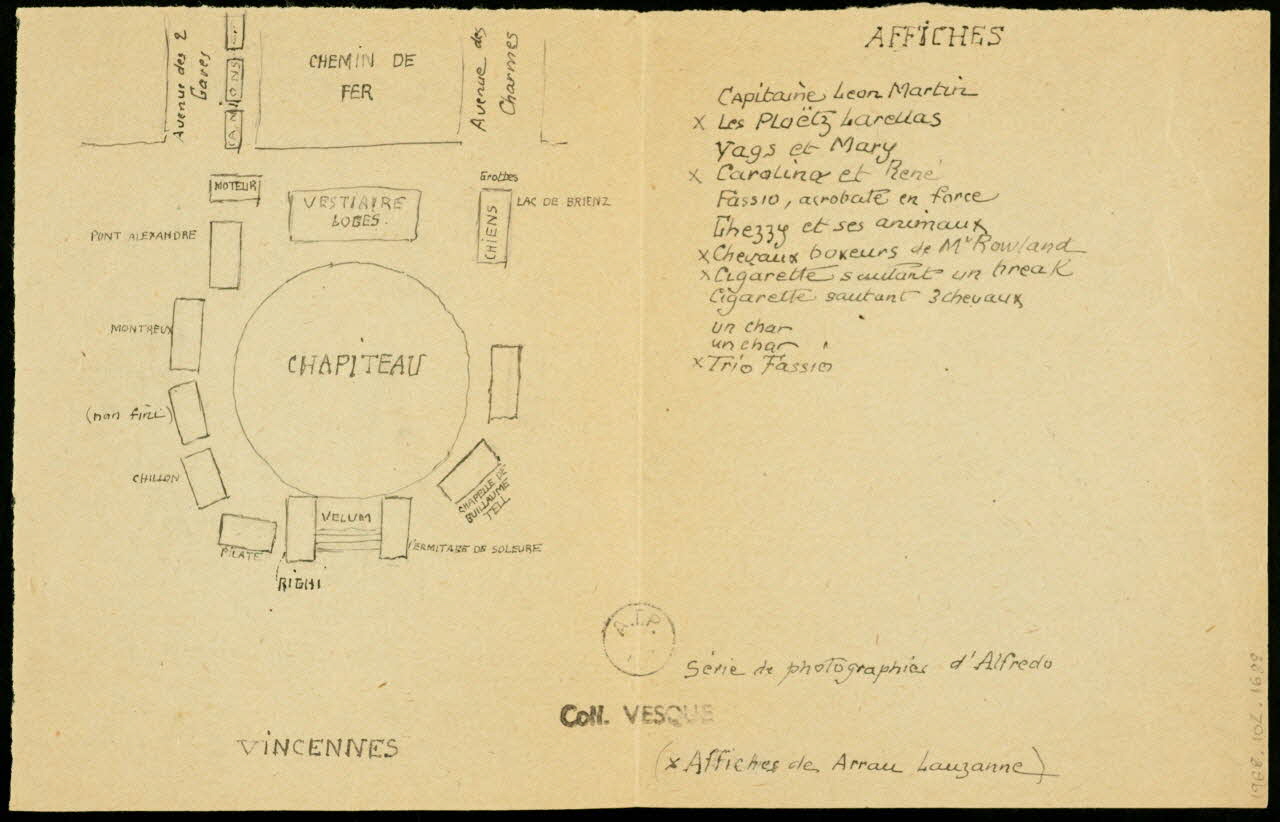 Avenue des 2
Gares
CAMIONS
CHEMIN DE
FER
Avenue des
Charmes
MOTEUR
VESTIAIRE
LOGES.
Grottes
CHIENS
LAC DE BRIENZ
PONT ALEXANDRE
MONTREUX
CHAPITEAU
(non fini)
CHILLON
CHAPELLE DE
GUILLAUME
TELL
VELUM
PILATE
L'ERMITAGE DE SOLEURE
RIGHI
VINCENNES
AFFICHES
Capitaine Leon Martin
x Les Ploëtz Larellas
Yags et Mary
x Carolina et René
Fassio, acrobate en force
Ghezzy et ses animaux
x Chevaux boxeurs de Mr Rowland
x Cigarette sautant un break
Cigarette sautant 3 chevaux
un char
un char
x Trio Fassio
A.T.P.
Série de photographies d'Alfredo
Coll. VESQUE
(x Affiches de Arrau Lauzanne)
1988.107.1609